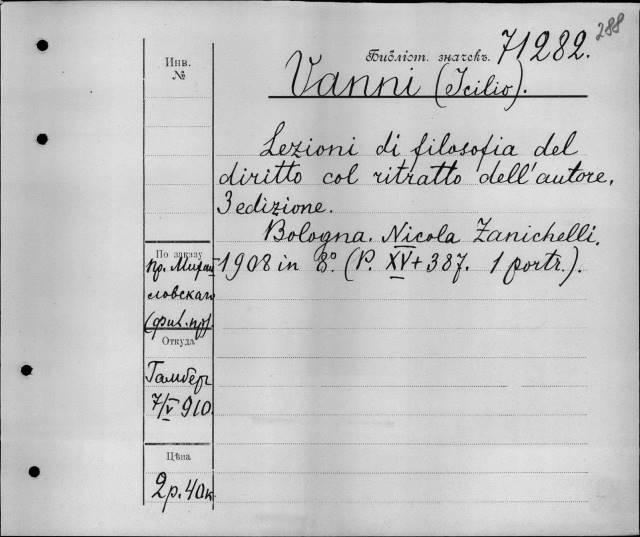 288
Библіот. значекъ. 71282.
Инв.
№
Vanni (Icilio).
Lezioni di filosofia del
diritto col ritratto dell'autore.
3 edizione.
Bologna. Nicola Zanichelli.
1908 in 8º. (P. XV + 387. 1 portr.).
По заказу
пр. Михай-
ловскаго
(фил. пр).
Откуда
Гамбер
7/V 910.
Цѣна
2 р. 40 к